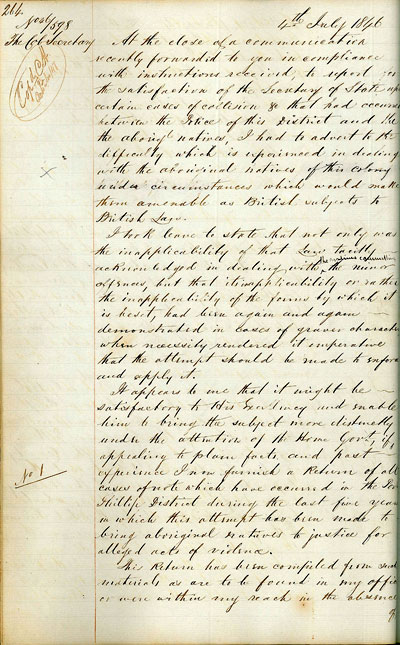 264.
No 46/598
4th July 1846
The Col Secretary
At the close of a communication
recently forwarded to you in compliance
with instructions received, to report for
the satisfaction of the Secretary of State upon
certain cases of collision & that had occurred
between the Police of this District and the
the aborigl natives, I had to advert to the
difficulty which is experienced in dealing
with the aboriginal natives of this colony
under circumstances which would make
them amenable as British subjects to
British Law.
I took leave to state that not only was
the inapplicability of that Law tacitly
acknowledged in dealing with the minor
offences, but that its inapplicability or rather
the inapplicability of the forms by which it
is beset, had been again and again
demonstrated in cases of graver character
when necessity rendered it imperative
that the attempt should be made to enforce
and apply it.
It appears to me that it might be
satisfactory to His Excellency and enable
him to bring the subject more distinctly
under the attention of the Home Govt, if
appealing to plain facts, and past
experience I now furnish a Return of all
No 1
cases of note which have occurred in the Port
Phillip District during the last five years
in which this attempt has been made to
bring aboriginal natives to justice for
alleged acts of violence.
This Return has been compiled from such
materials as are to be found in my office
or were within my reach in the absence
of